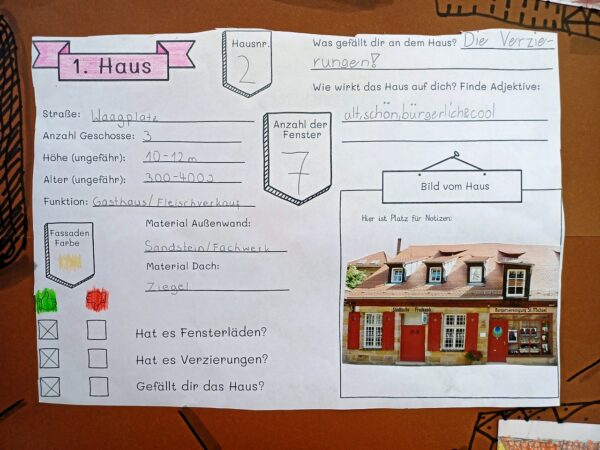 1. Haus
Hausnr.
2
Was gefällt dir an dem Haus? Die Verzie-
rungen!
Wie wirkt das Haus auf dich? Finde Adjektive:
alt, schön, bürgerlich & cool
Straße: Waagplatz
Anzahl Geschosse: 3
Höhe (ungefähr): 10-12m
Alter (ungefähr): 300-400J
Funktion: Gasthaus/Fleischverkauf
Anzahl der
Fenster
7
Fassaden
Farbe
Material Außenwand:
Sandstein/Fachwerk
Material Dach:
Ziegel
Hat es Fensterläden?
Hat es Verzierungen?
Gefällt dir das Haus?
Bild vom Haus
Hier ist Platz für Notizen:
Städtische Freibank
Bürgervereinigung St. Michael